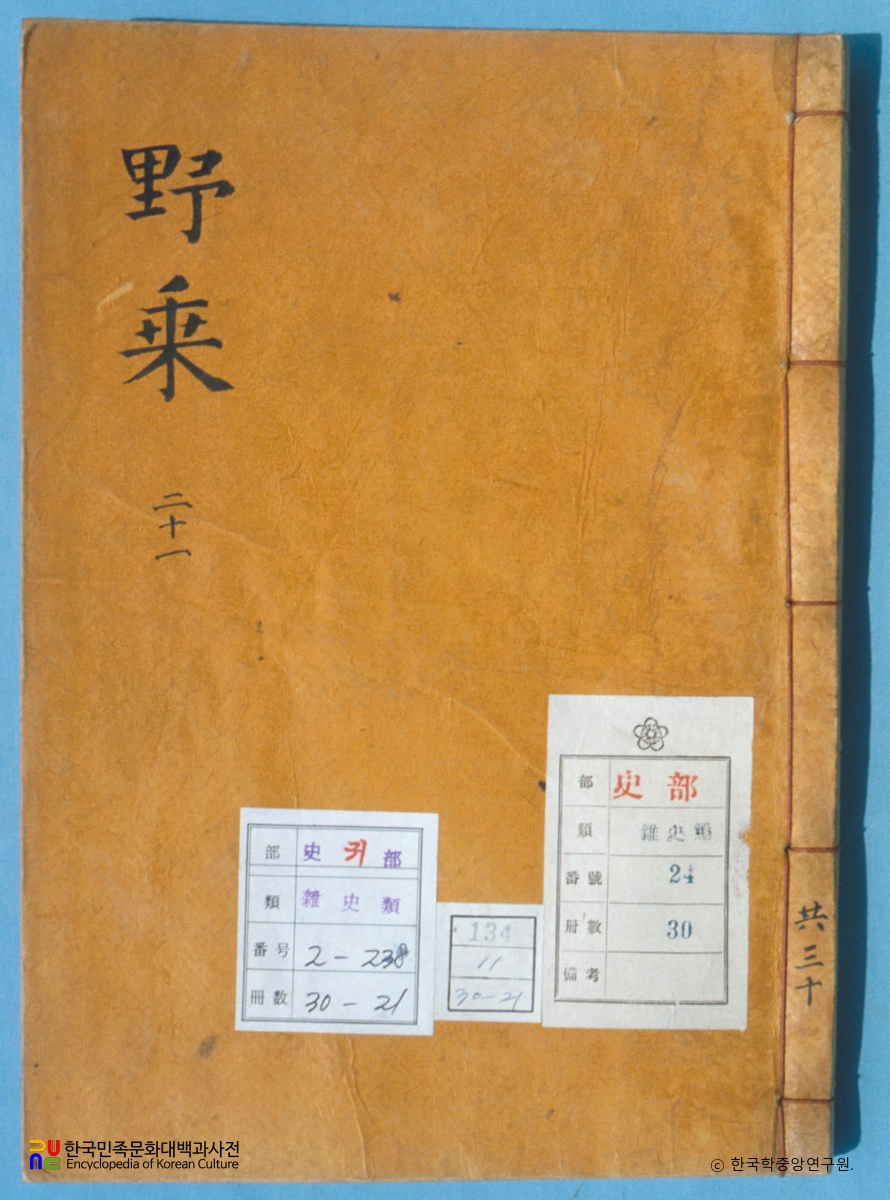 野乗
二十一
共三十
部 史 귀 部
類 雜史類
番号 2-238
冊数 30-21
134
11
30-21
部 史部
類 雜史類
番號 24
冊數 30
備考
한국민족문화대백과사전
Encyclopedia of Korean Culture
ⓒ 한국학중앙연구원.